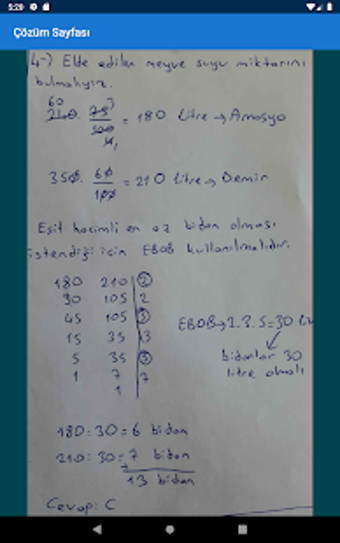 5:20
Çözüm Sayfası
4-) Elde edilen meyve suyu miktarını
bulmalıyız.
60 3
240. 75 / 100 = 180 Litre → Amasya
4 1
350. 60 / 100 = 210 Litre → Demir
Eşit hacimli en az bidon olması
istendiği için EBOB kullanılmalıdır.
180 210 | 2
90 105 | 2
45 105 | 3
15 35 | 3
5 35 | 5
1 7 | 7
1
EBOB → 2.3.5=30
bidonlar 30
litre olmalı
180:30=6 bidon
210:30=7 bidon
13 bidon
Cevap: C